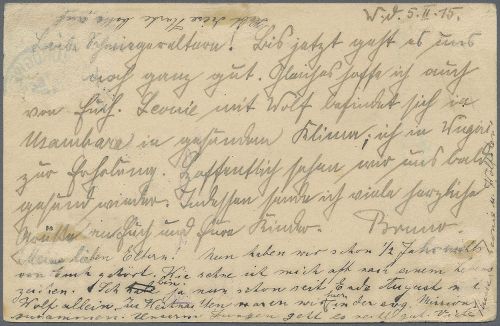 W.d. 5.II.15.
Liebe Schwiegereltern! Bis jetzt geht es uns
noch ganz gut. Gleiches hoffe ich auch
von Euch. Leonie mit Wolf befindet sich in
Usambara in gesundem Klima; ich in Wugiri
zur Erholung. Hoffentlich sehen wir uns bald
gesund wieder. Indessen sende ich viele herzliche
Grüße an Euch und Eure Kinder. Bruno.
Meine lieben Eltern! Nun haben wir schon 1/2 Jahr nichts
von Euch gehört. Wie sehne ich mich oft nach einem Lebens
zeichen. Ich bin ja nun schon seit Ende August m.
Wolf allein, zu Weihnachten waren wir in der evg. Mission
zusammen. Unserm Jungen geht es recht gut. Viele